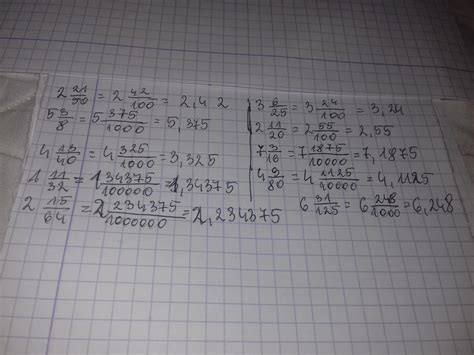 2 21/50 = 2 42/100 = 2,42
5 3/8 = 5 375/1000 = 5,375
4 13/40 = 4 325/1000 = 3,325
1 11/32 = 1 34375/100000 = 1,34375
2 15/64 = 2 234375/1000000 = 2,234375
3 6/25 = 3 24/100 = 3,24
2 11/20 = 2 55/100 = 2,55
7 3/16 = 7 1875/10000 = 7,1875
4 9/80 = 4 1125/10000 = 4,1125
6 31/125 = 6 248/1000 = 6,248